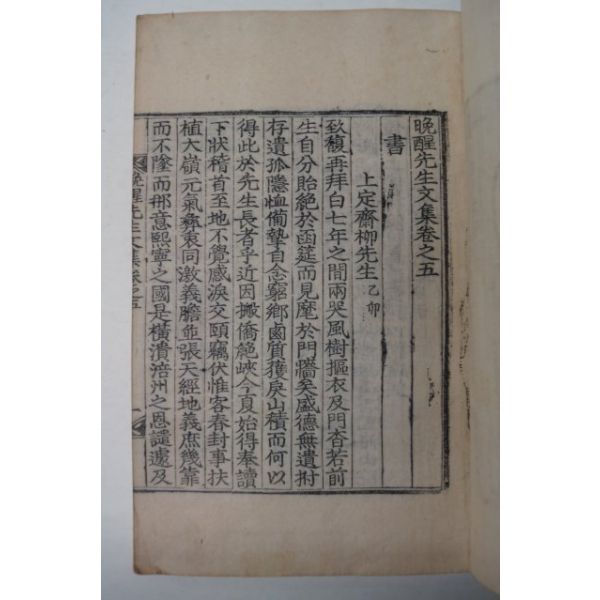 晩醒先生文集卷之五
書
上定齋柳先生 乙卯
致馥再拜白七年之間兩哭風樹摳衣及門杳若前
生自分貽絶於函筵而見麾於門墻矣盛德無遺拊
存遺孤隱恤備摯自念窮鄕鹵質獲戾山積而何以
得此於先生長者乎近因搬僑絶峽今夏始得奉讀
下狀稽首至地不覺感淚交頤竊伏惟客春封事扶
植大嶺元氣彛衷同激義膽並張天經地義庶幾靠
而不墜而那意熙寧之國是橫潰涪州之恩譴遽及
晩醒先生文集卷之五 一